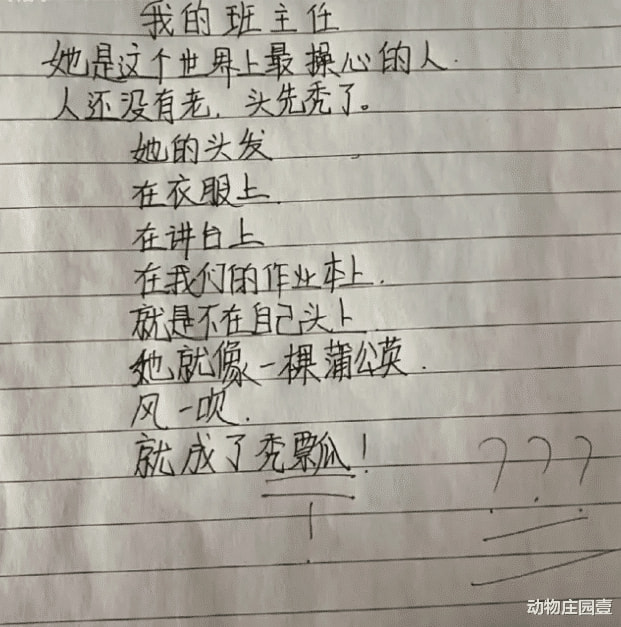 我的班主任
她是这个世界上最操心的人.
人还没有老,头先秃了。
她的头发
在衣服上.
在讲台上
在我们的作业本上.
就是不在自己头上
她就像一棵蒲公英.
风一吹.
就成了秃瓢!
???
!
动物庄园壹